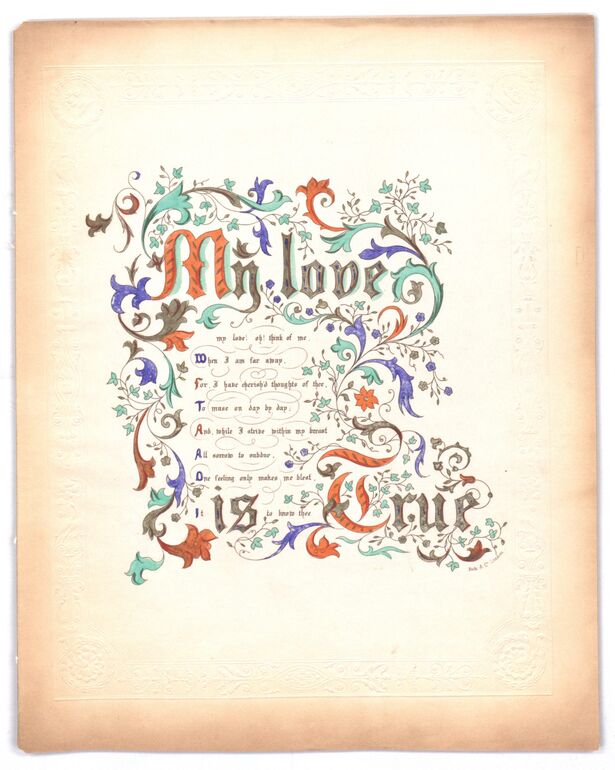 My love
my love! oh! think of me
When I am far away,
For, I have cherish'd thoughts of thee,
To muse on day by day;
And, while I strive within my breast
All sorrow to subdue,
One feeling only makes me blest
to know thee
is True